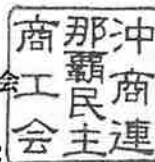 沖商連
那覇民主
商工会
会